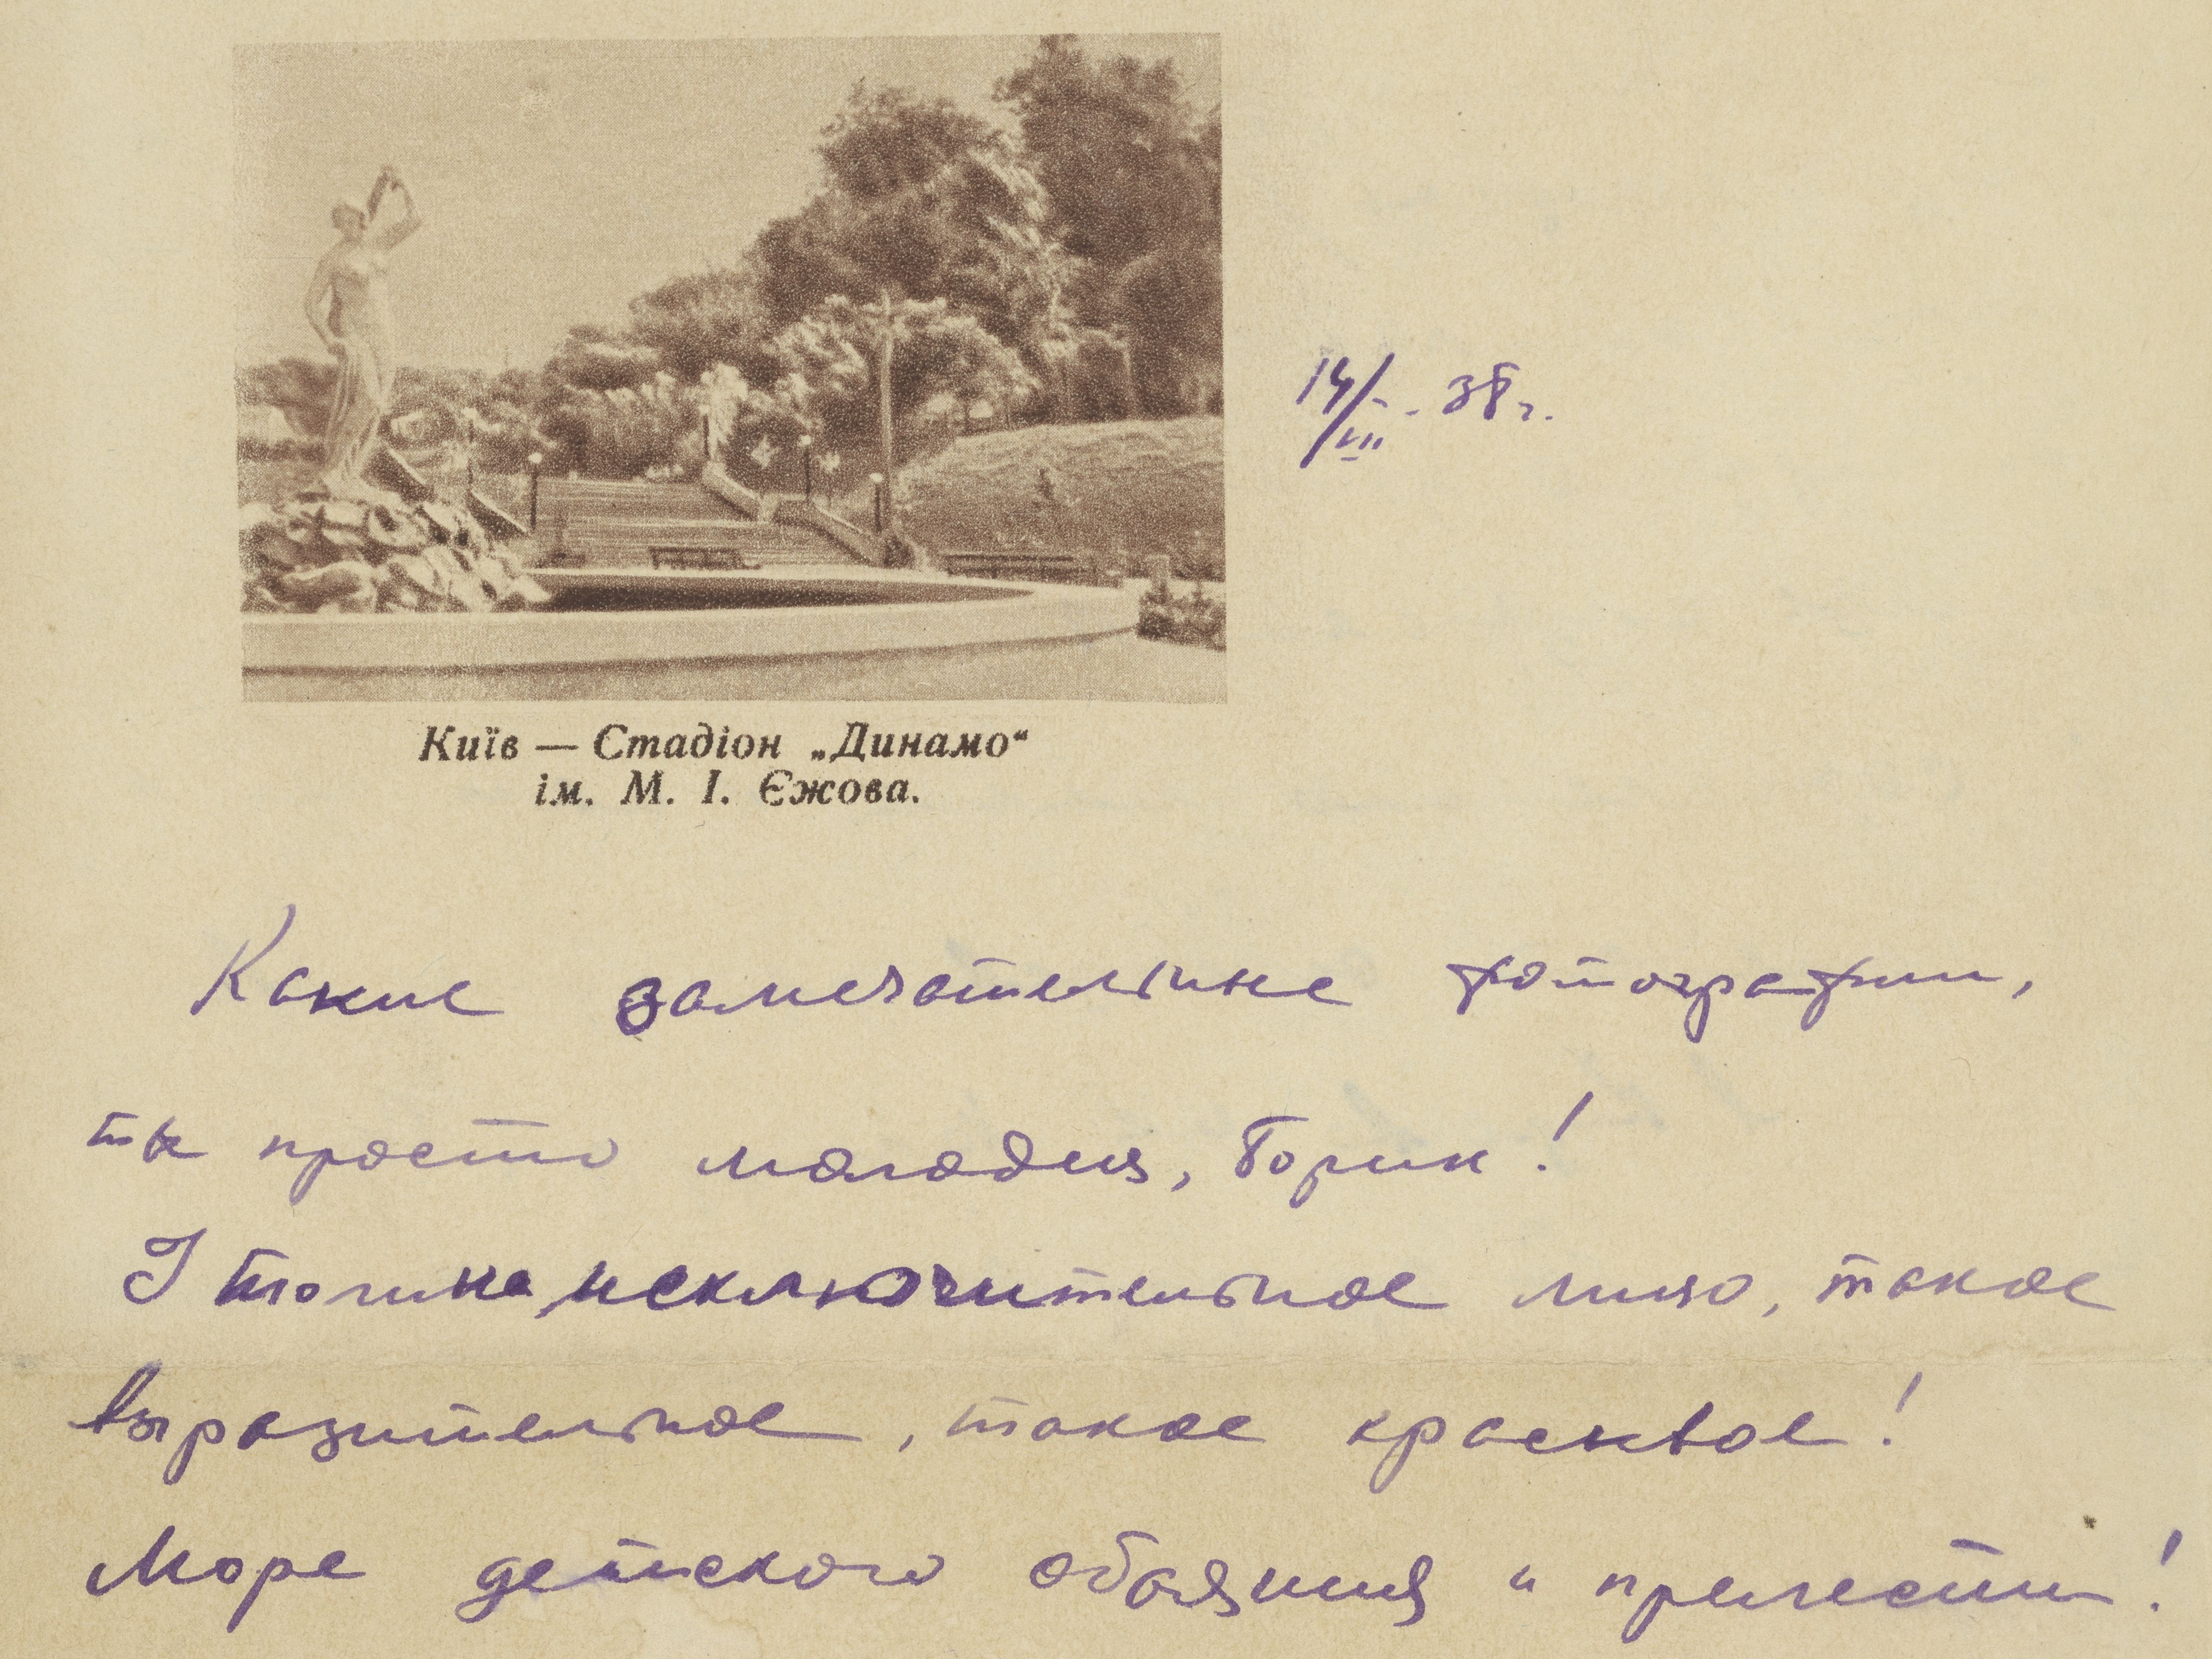 14/VII. 38 г.
Київ — Стадіон „Динамо“
ім. М. І. Єжова.
Какие замечательные фотографии,
ты просто молодец, Борик!
У Толика исключительное лицо, такое
выразительное, такое красивое!
Море детского обаяния и прелести!